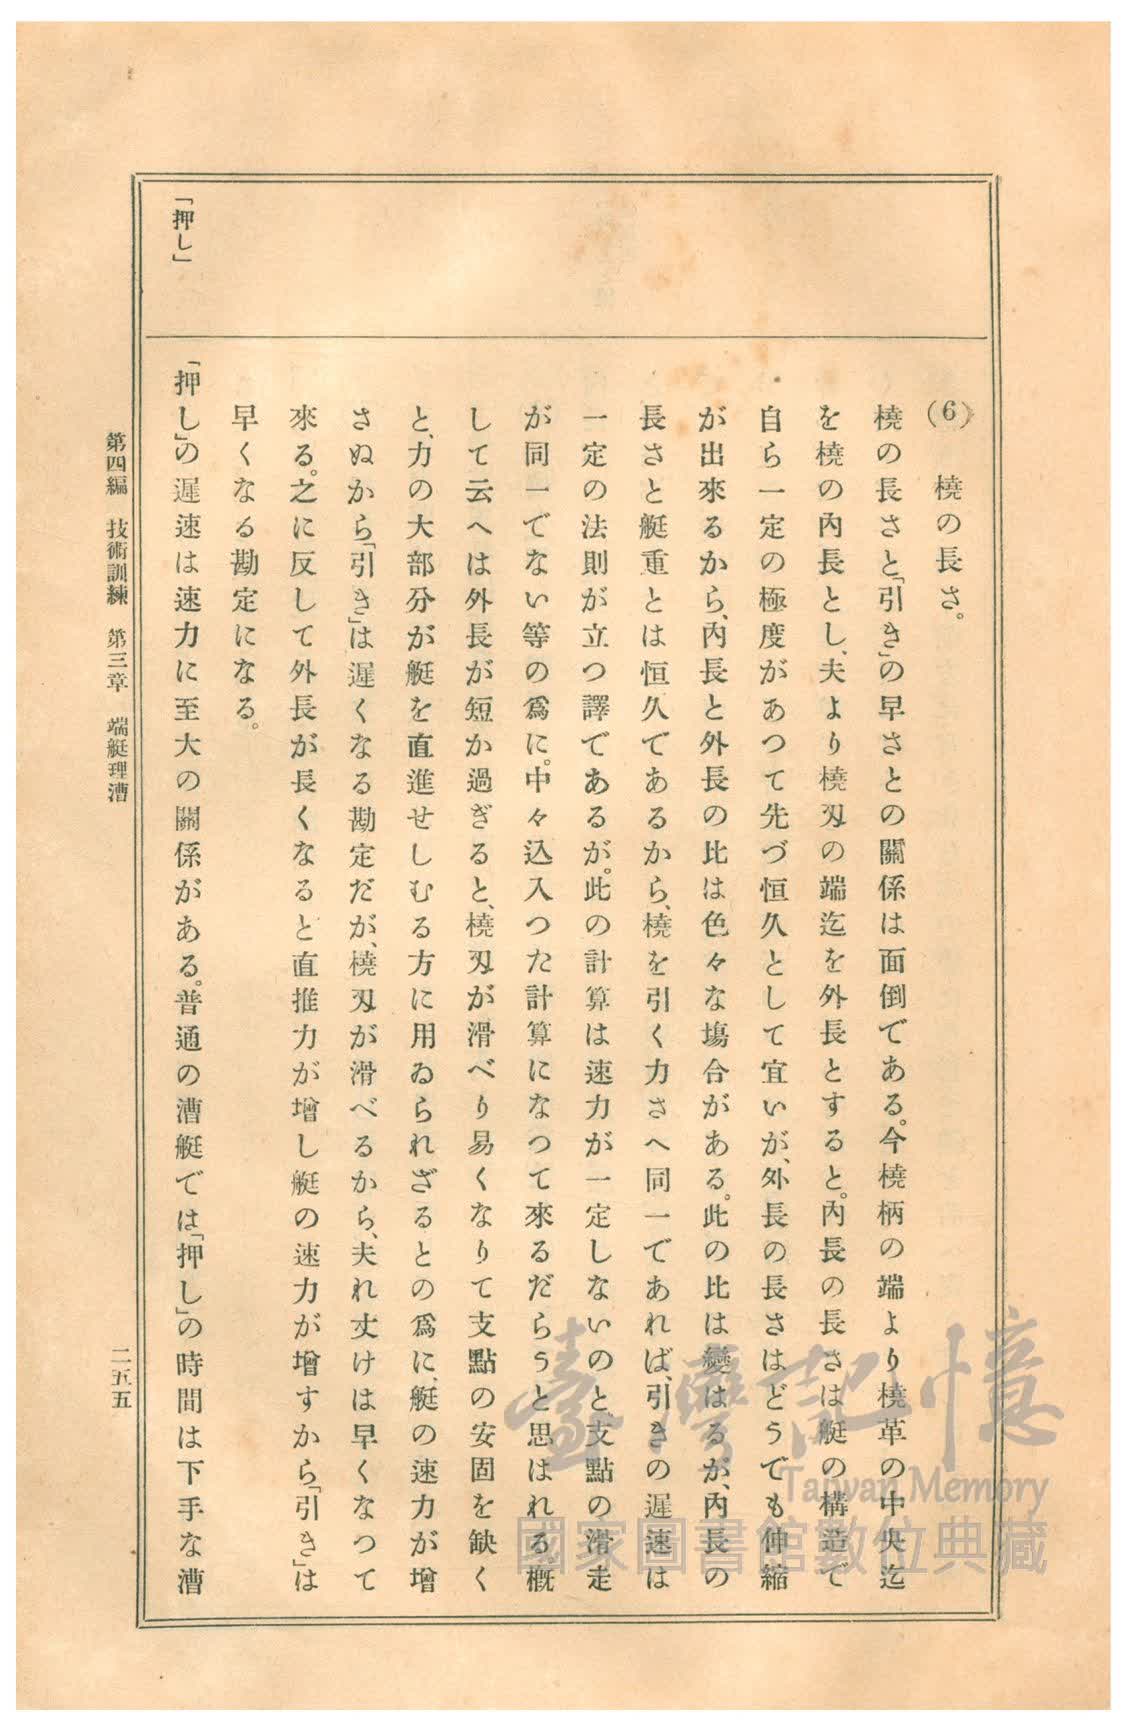 「押し」
(6) 橈の長さ。
橈の長さと「引き」の早さとの關係は面倒である。今橈柄の端より橈革の中央迄
を橈の內長とし、夫より橈刄の端迄を外長とすると。內長の長さは艇の構造で
自ら一定の極度があつて先づ恒久として宜いが、外長の長さはどうでも伸縮
が出來るから、內長と外長の比は色々な塲合がある。此の比は變はるが、內長の
長さと艇重とは恒久であるから、橈を引く力さへ同一であれば、引きの遲速は
一定の法則が立つ譯であるが。此の計算は速力が一定しないのと、支點の滑走
が同一でない等の爲に。中々込入つた計算になつて來るだらうと思はれる。概
して云へは外長が短か過ぎると、橈刄が滑べり易くなりて支點の安固を缺く
と、力の大部分が艇を直進せしむる方に用ゐられざるとの爲に、艇の速力が增
さぬから「引き」は遲くなる勘定だが、橈刄が滑べるから、夫れ丈けは早くなつて
來る。之に反して外長が長くなると直推力が增し艇の速力が增すから「引き」は
早くなる勘定になる。
「押し」の遲速は速力に至大の關係がある。普通の漕艇では「押し」の時間は下手な漕
第四編 技術訓練 第三章 端艇理漕
二五五
臺灣記憶
Taiwan Memory
國家圖書館數位典藏